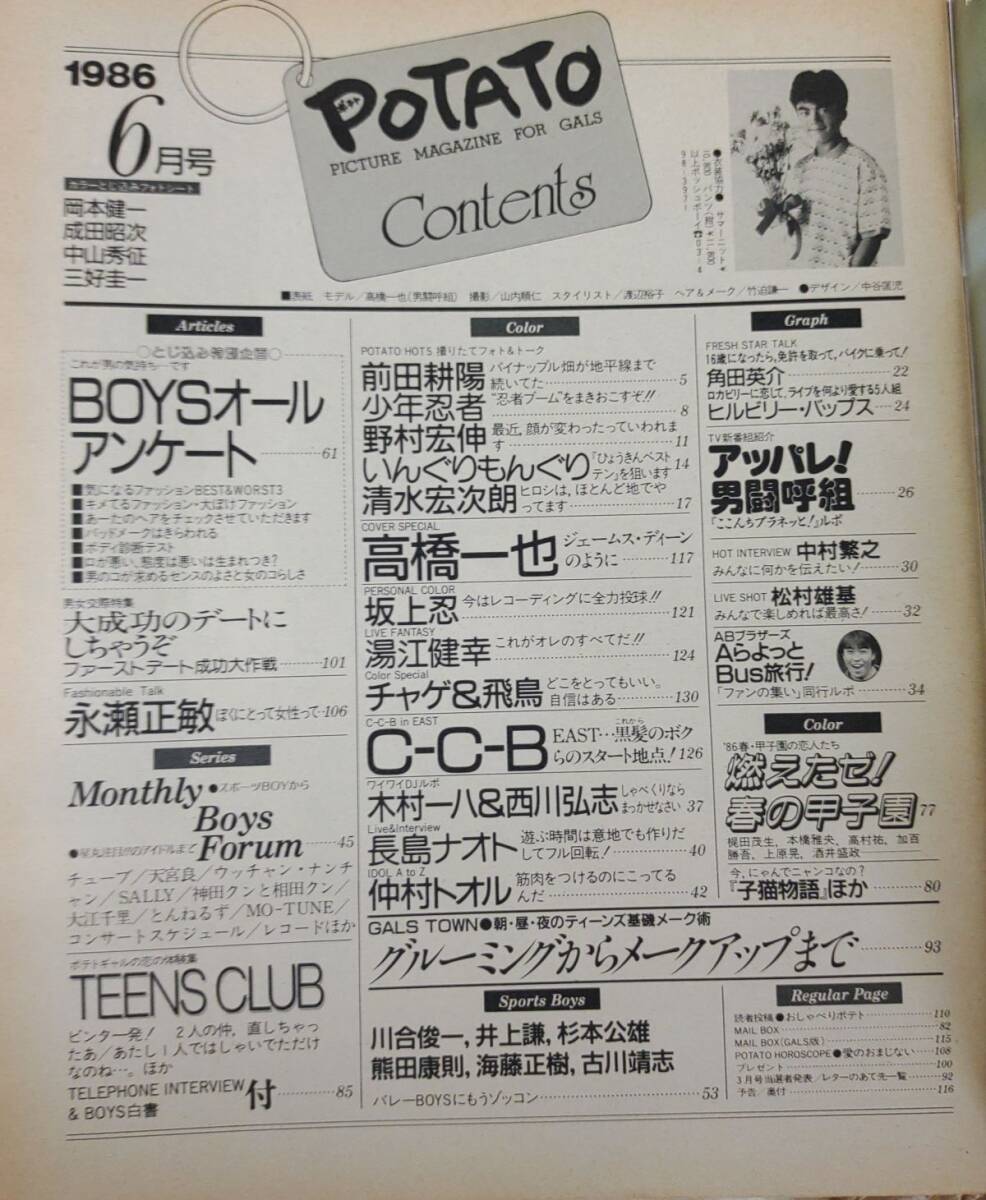 1986
6月号
カラーとじ込みフォトシート
岡本健一
成田昭次
中山秀征
三好圭一
ポテト
POTATO
PICTURE MAGAZINE FOR GALS
Contents
●衣装協力●サマーニット¥
10,800 パンツ(紺)¥11,800
以上ボッシュボーイ☎03-4
98-3971
■表紙 モデル/高橋一也(男闘呼組) 撮影/山内順仁 スタイリスト/渡辺裕子 ヘア&メーク/竹迫謙一 ●デザイン/中谷匡児
Articles
○とじ込み特別企画○
これが男の気持ち…です
BOYSオール
アンケート……61
■気になるファッションBEST&WORST3
■キメてるファッション・大ぼけファッション
■あーたのヘアをチェックさせていただきます
■バッドメークはきらわれる
■ボディ診断テスト
■口が悪い、態度は悪いは生まれつき?
■男のコが求めるセンスのよさと女のコらしさ
男女交際特集
大成功のデートに
しちゃうぞ
ファーストデート成功大作戦……101
Fashionable Talk
永瀬正敏 ぼくにとって女性って…106
Series
Monthly ●スポーツBOYから
Boys
●星丸注目!!のアイドルまで Forum……45
チューブ/天宮良/ウッチャン・ナンチ
ャン/SALLY/神田クンと相田クン/
大江千里/とんねるず/MO-TUNE/
コンサートスケジュール/レコードほか
ポテトギャルの恋の体験集
TEENS CLUB
ビンタ一発! 2人の仲,直しちゃっ
たあ/あたし1人ではしゃいでただけ
なのね…。ほか
TELEPHONE INTERVIEW
& BOYS白書 付……85
Color
POTATO HOT5 撮りたてフォト&トーク
前田耕陽 パイナップル畑が地平線まで
続いてた……5
少年忍者 "忍者ブーム"をまきおこすぞ!!
……8
野村宏伸 最近,顔が変わったっていわれま
す……11
いんぐりもんぐり 『ひょうきんベスト
テン』を狙います 14
清水宏次朗 ヒロシは,ほとんど地でや
ってます……17
COVER SPECIAL
高橋一也 ジェームス・ディーン
のように……117
PERSONAL COLOR
坂上忍 今はレコーディングに全力投球!!
……121
LIVE FANTASY
湯江健幸 これがオレのすべてだ!!
……124
Color Special
チャゲ&飛鳥 どこをとってもいい。
自信はある……130
C-C-B in EAST
C-C-B EAST…黒髪のボク
これから
らのスタート地点! 126
ワイワイDJルポ
木村一八&西川弘志 しゃべくりなら
まっかせなさい 37
Live&Interview
長島ナオト 遊ぶ時間は意地でも作りだ
してフル回転!……40
IDOL A to Z
仲村トオル 筋肉をつけるのにこってる
んだ……42
GALS TOWN●朝・昼・夜のティーンズ基礎メーク術
グルーミングからメークアップまで……93
Sports Boys
川合俊一, 井上謙, 杉本公雄
熊田康則, 海藤正樹, 古川靖志
バレーBOYSにもうゾッコン……53
Graph
FRESH STAR TALK
16歳になったら,免許を取って,バイクに乗って!
角田英介……22
ロカビリーに恋して,ライブを何より愛する5人組
ヒルビリー・バップス……24
TV新番組紹介
アッパレ!
男闘呼組……26
『ここんちプラネッと!』ルポ
HOT INTERVIEW 中村繁之
みんなに何かを伝えたい!……30
LIVE SHOT 松村雄基
みんなで楽しめれば最高さ!……32
ABブラザーズ
Aらよっと
Bus旅行!
「ファンの集い」同行ルポ……34
Color
'86春・甲子園の恋人たち
燃えたぜ!
春の甲子園 77
梶田茂生, 本橋雅央, 高村祐, 加百
勝吾, 上原晃, 酒井盛政
今,にゃんでニャンコなの?
『子猫物語』ほか……80
Regular Page
読者投稿●おしゃべりポテト……110
MAIL BOX……82
MAIL BOX(GALS版)……115
POTATO HOROSCOPE●愛のおまじない…108
プレゼント……100
3月号当選者発表/レターのあて先一覧……92
予告/奥付……116